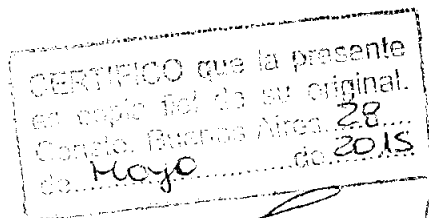 CERTIFICO que la presente
es copia fiel de su original.
Conste. Buenos Aires, 28
de Mayo de 2015